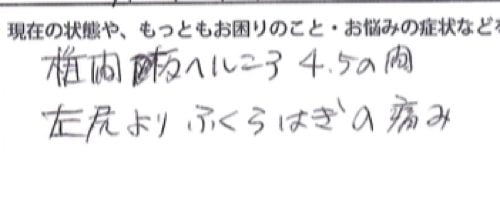 現在の状態や、もっともお困りのこと・お悩みの症状などを
椎間板ヘルニア 4.5の間
左尻よりふくらはぎの痛み